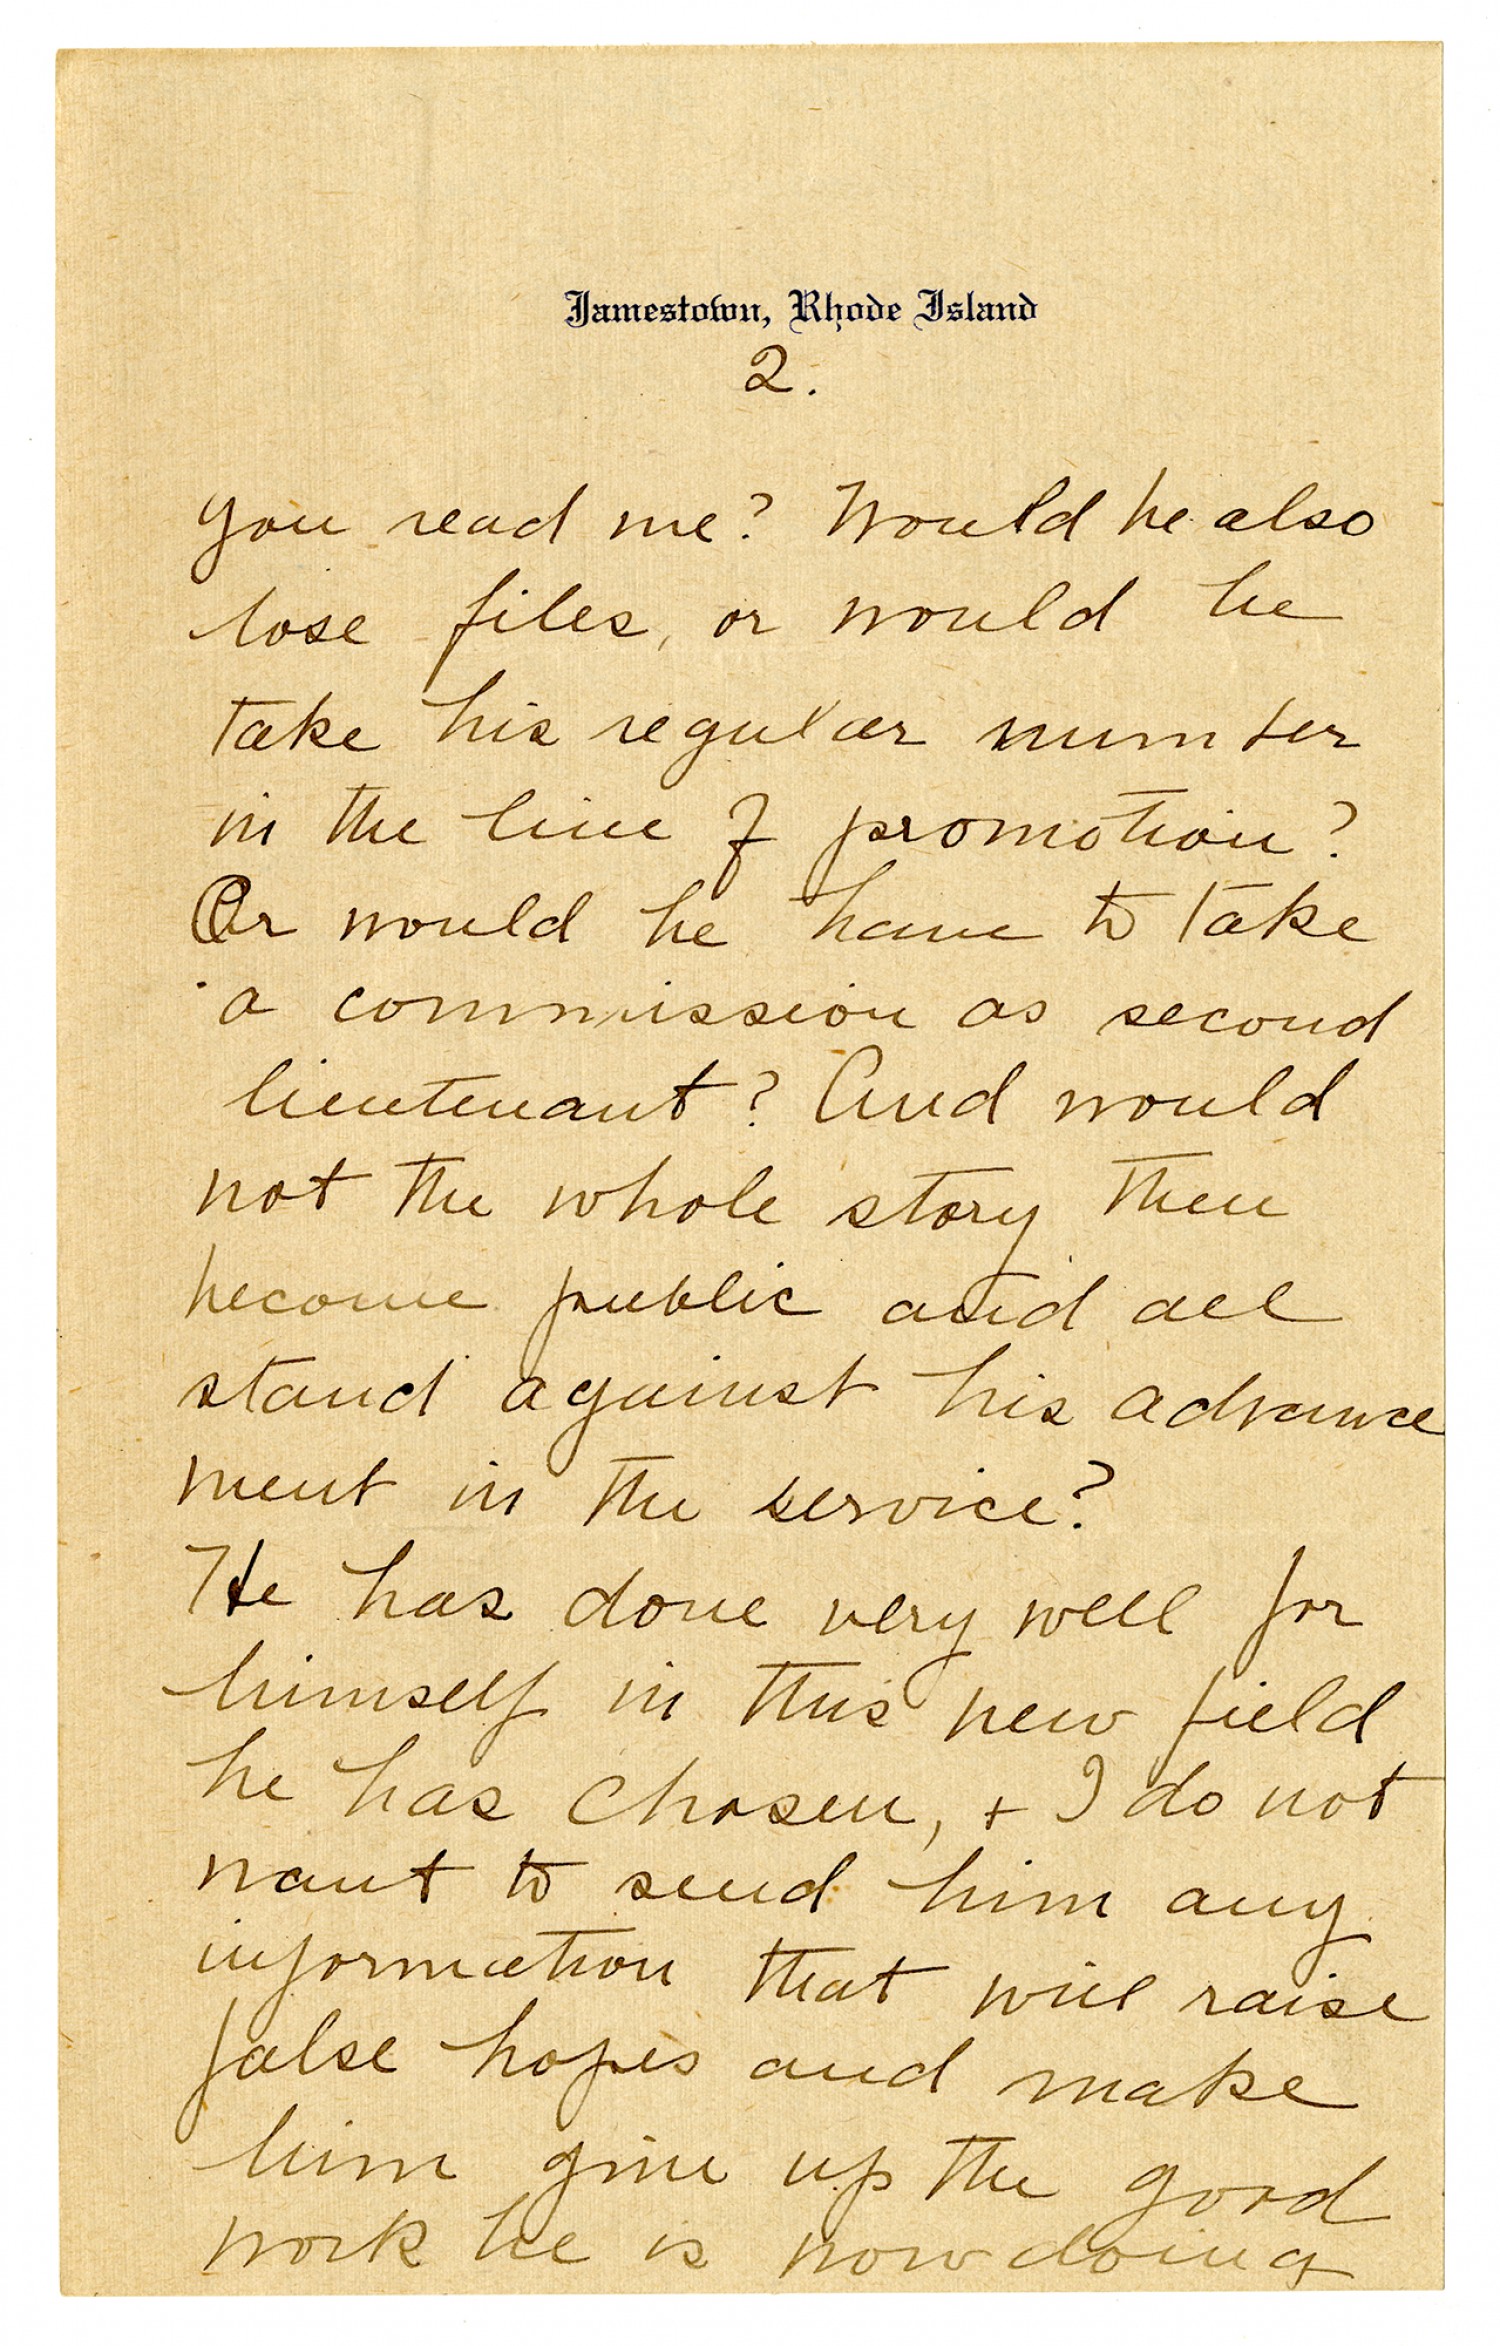 Jamestown, Rhode Island
2.
you read me? Would he also
lose files, or would he
take his regular number
in the line of promotion?
Or would he have to take
a commission as second
lieutenant? And would
not the whole story then
become public and all
stand against his advance
ment in the service?
He has done very well for
himself in this new field
he has chosen, + I do not
want to send him any
information that will raise
false hopes and make
him give up the good
work he is now doing